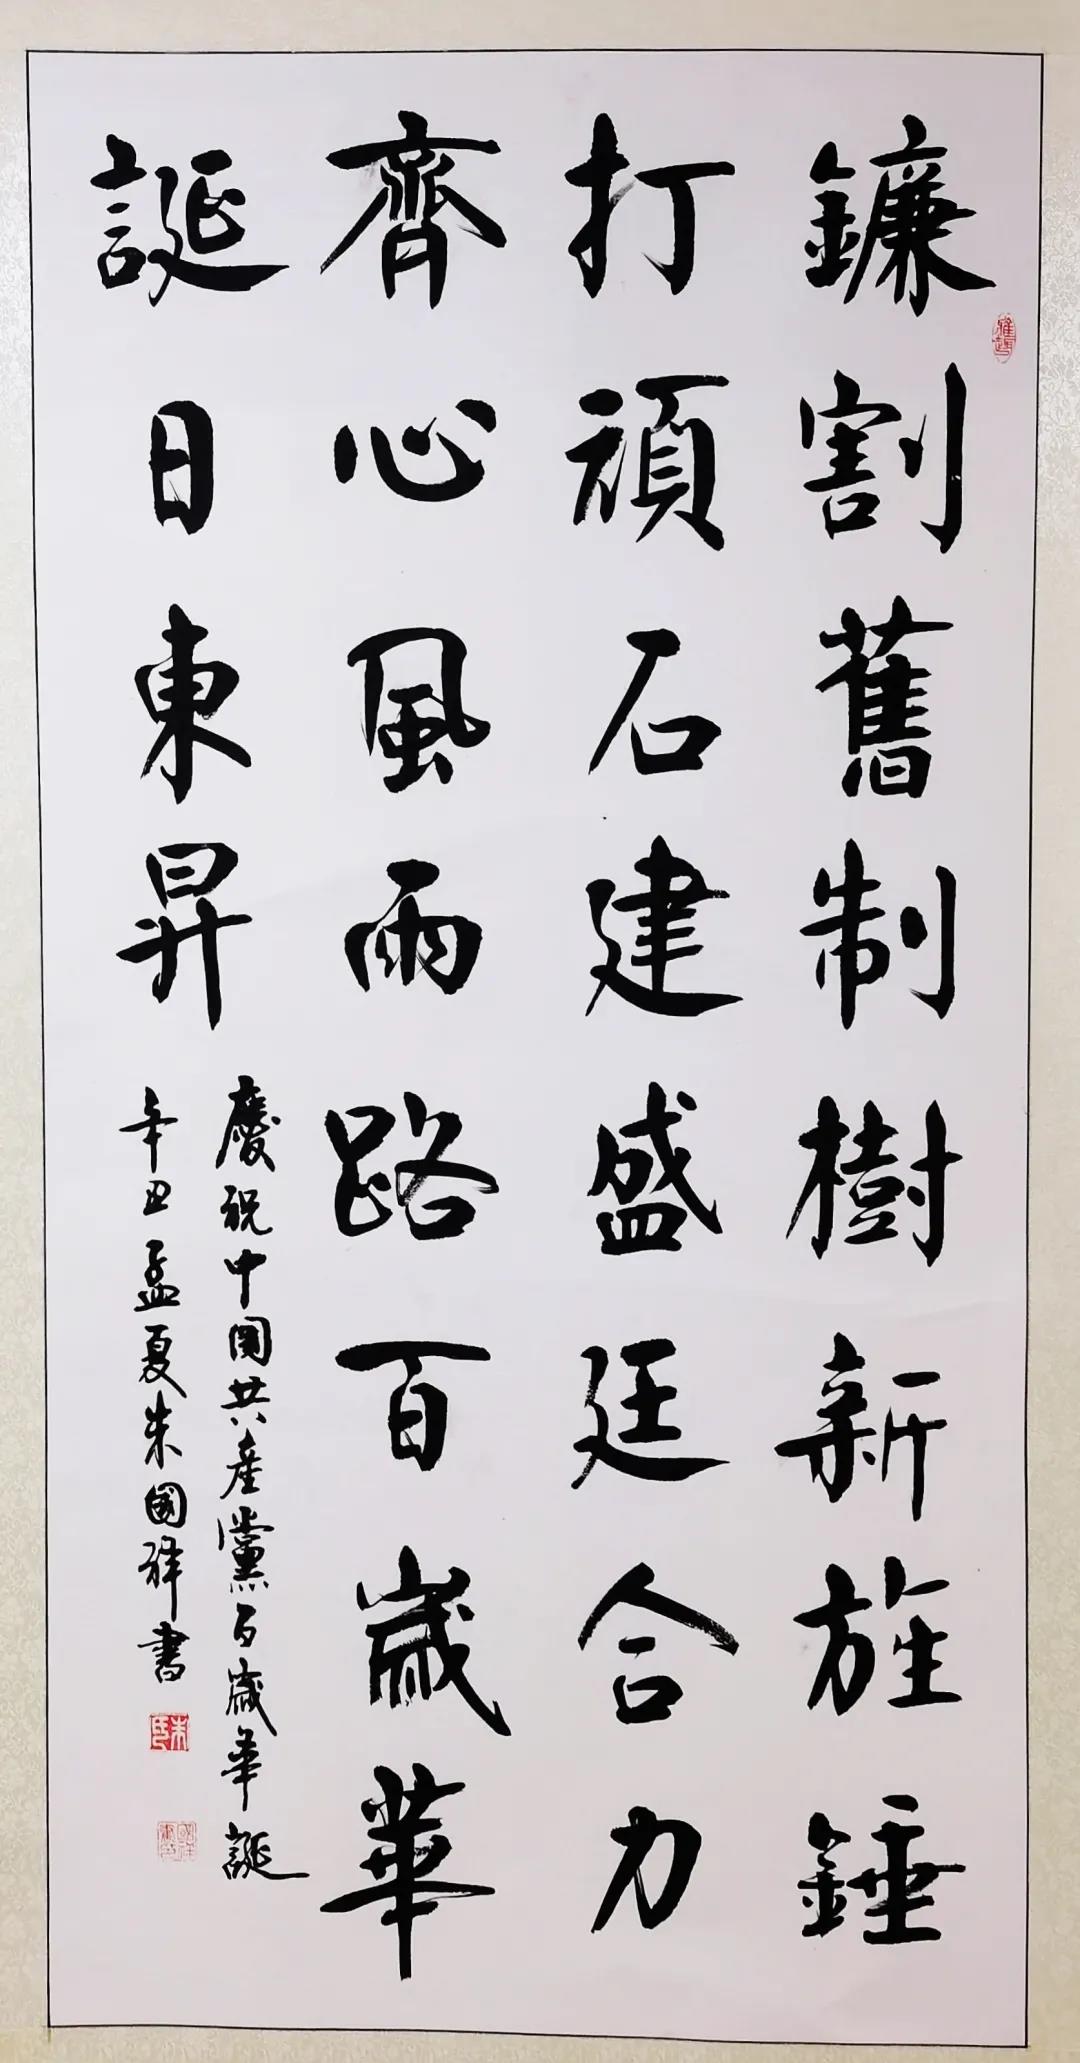 鐮割舊制樹新旌錘
打頑石建盛廷合力
齊心風雨路百歲華
誕日東昇
慶祝中國共產黨百歲華誕
辛丑孟夏朱國祥書
雅趣
朱氏